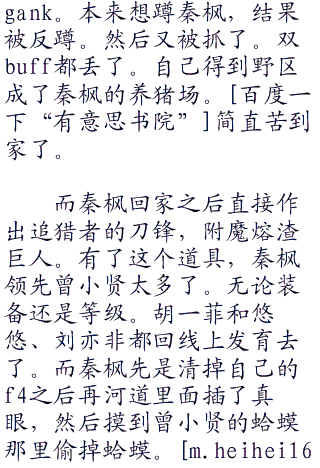 gank。本来想蹲秦枫，结果
被反蹲。然后又被抓了。双
buff都丢了。自己得到野区
成了秦枫的养猪场。[百度一
下“有意思书院”]简直苦到
家了。
而秦枫回家之后直接作
出追猎者的刀锋，附魔熔渣
巨人。有了这个道具，秦枫
领先曾小贤太多了。无论装
备还是等级。胡一菲和悠
悠、刘亦非都回线上发育去
了。而秦枫先是清掉自己的
f4之后再河道里面插了真
眼，然后摸到曾小贤的蛤蟆
那里偷掉蛤蟆。[m.heihei16